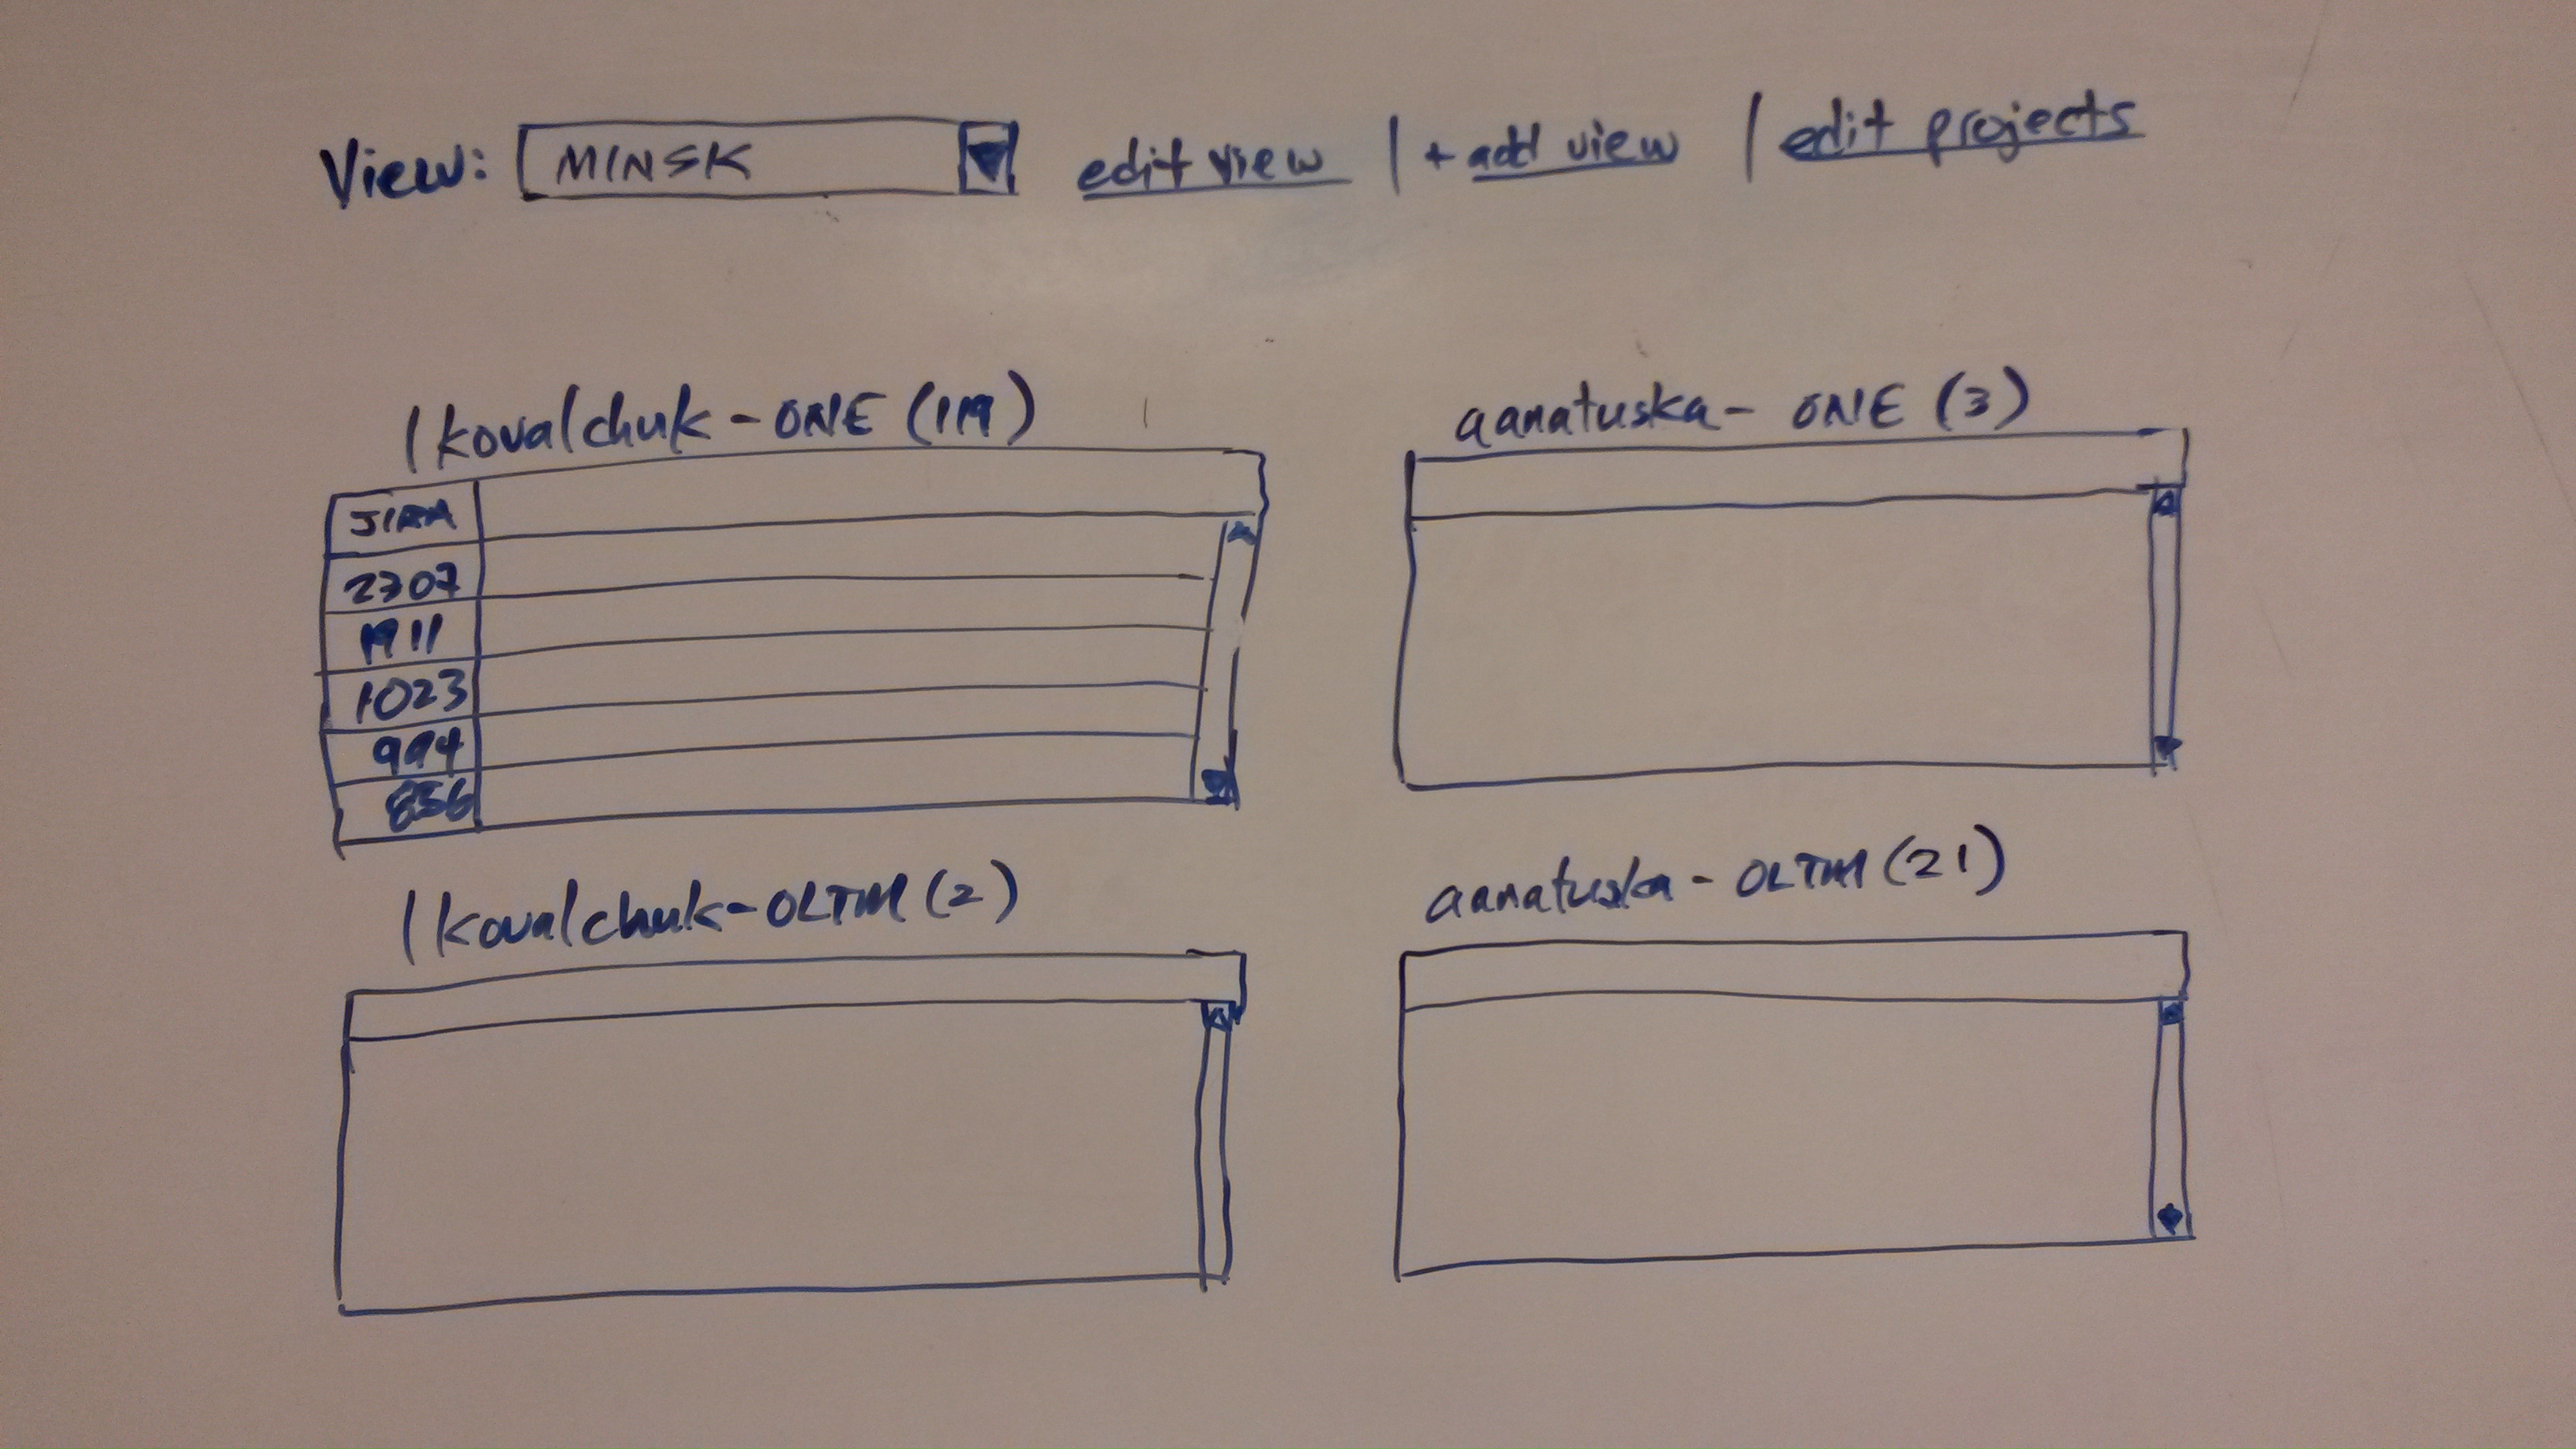 View: MINSK edit view | + add view | edit projects
lkovalchuk - ONE (119)
aanatuska - ONE (3)
JIRA
2707
1911
1023
994
856
lkovalchuk - OLTM (2)
aanatuska - OLTM (21)